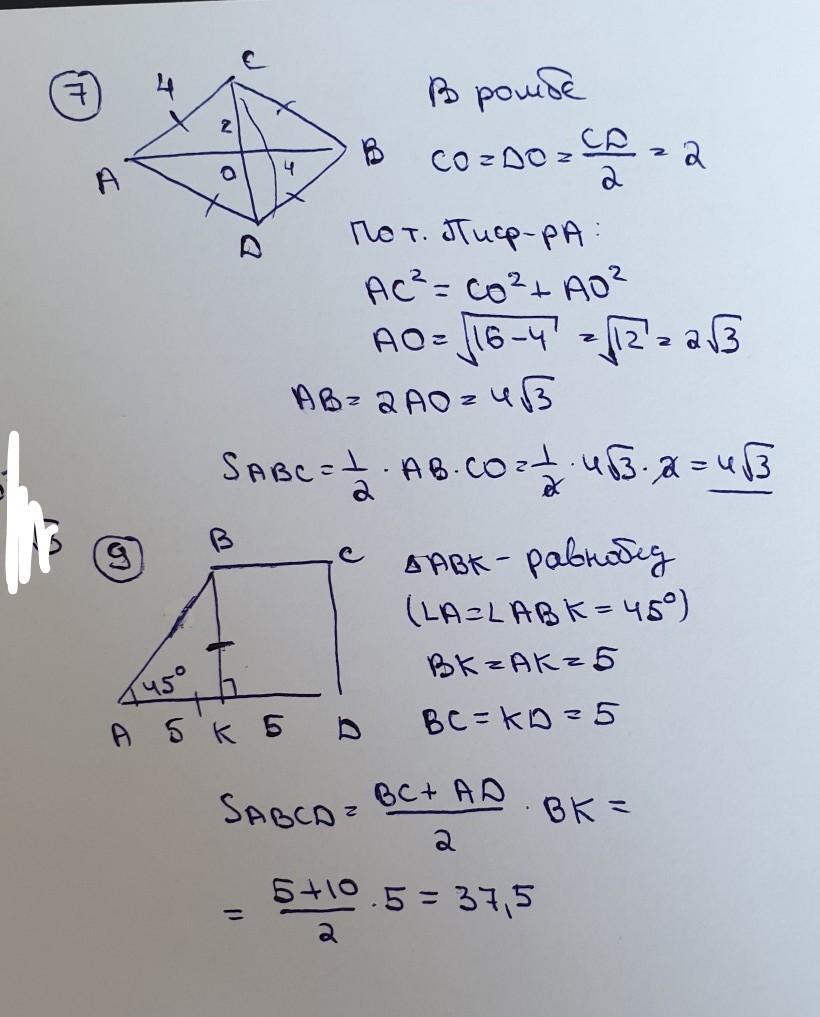 7
C
4
2
A
O
4
B
D
В ромбе
CO = DO = CD/2 = 2
По т. Пиф-рА:
AC² = CO² + AO²
AO = √16-4 = √12 = 2√3
AB = 2AO = 4√3
SABC = 1/2 · AB · CO = 1/2 · 4√3 · 2 = 4√3
9
B
C
45°
A 5 K 5 D
ΔABK - равнобед
(∠A = ∠ABK = 45°)
BK = AK = 5
BC = KD = 5
SABCD = BC + AD/2 · BK =
= 5+10/2 · 5 = 37,5